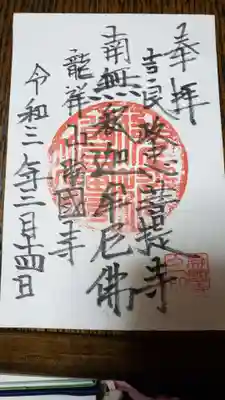 奉拝
吉良政忠菩提寺
南無釈迦牟尼佛
龍祥山勝國寺
令和三年三月十四日